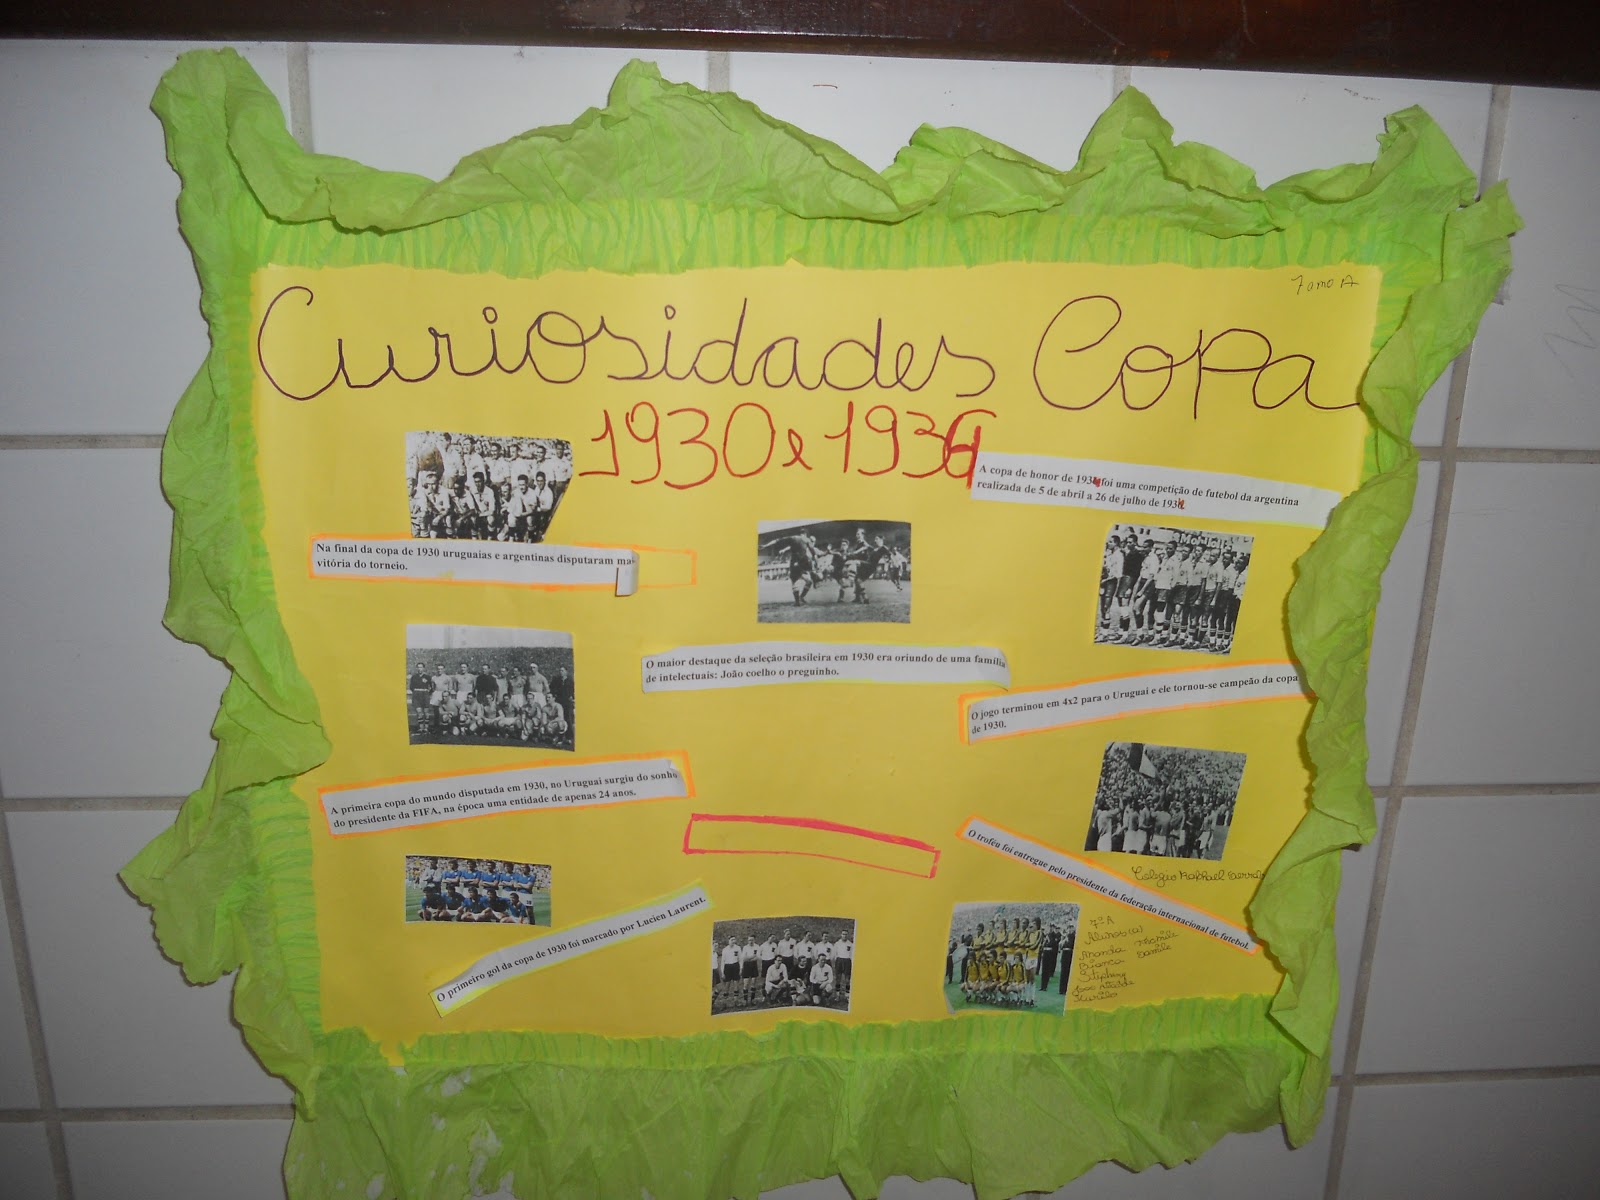 7 ano A
Curiosidades Copa
1930 e 1934
A copa de honor de 1934 foi uma competição de futebol da argentina
realizada de 5 de abril a 26 de julho de 1934
Na final da copa de 1930 uruguaias e argentinas disputaram
vitória do torneio.
O maior destaque da seleção brasileira em 1930 era oriundo de uma família
de intelectuais: João coelho o preguinho.
O jogo terminou em 4x2 para o Uruguai e ele tornou-se campeão da copa
de 1930.
A primeira copa do mundo disputada em 1930, no Uruguai surgiu do sonho
do presidente da FIFA, na época uma entidade de apenas 24 anos.
O troféu foi entregue pelo presidente da federação internacional de futebol.
O primeiro gol da copa de 1930 foi marcado por Lucien Laurent.
Colégio Raphael Serrav
7º A
Alunos(as)
Ananda
Bianca Danile
Murilo